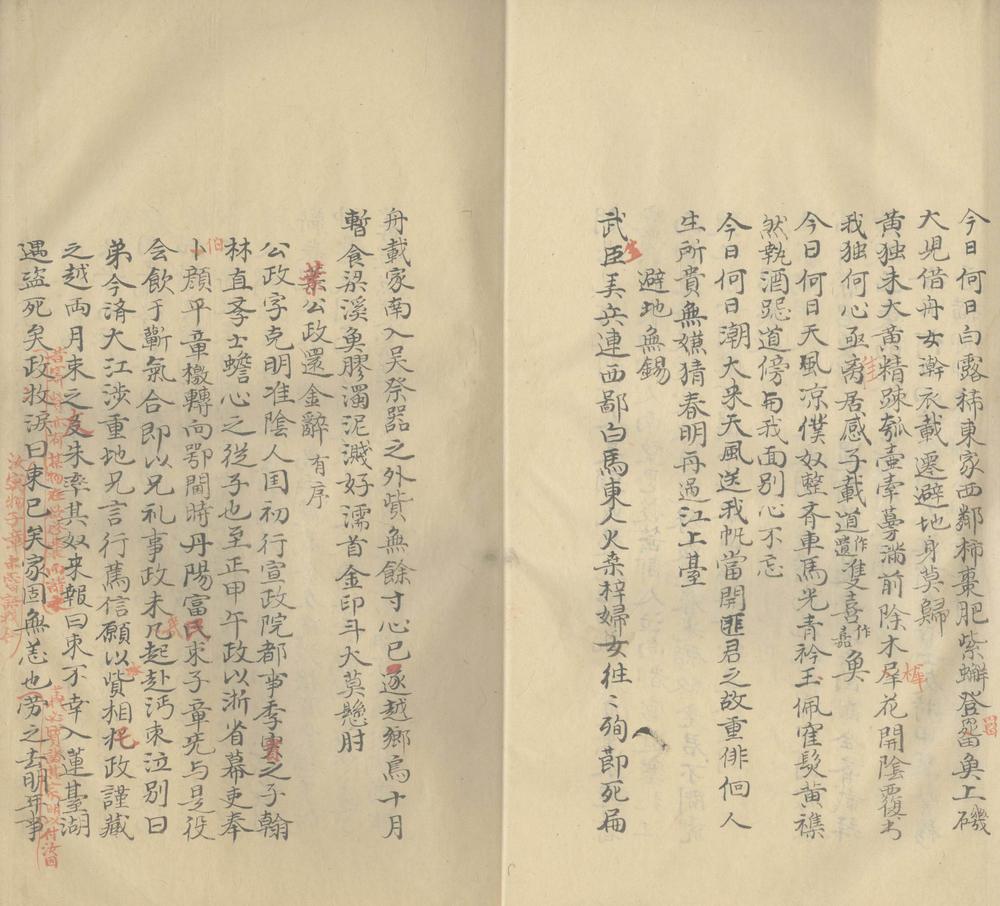 今日何日白露稀東家西鄰柿棗肥紫蠏登罶魚上磯
大児借舟女澣衣載遷避地身莫歸
黄独未大黄精踈瓠壷牽蔓滿前除木犀花開陰覆
我独何心亟离居感子載道作遺隻喜作嘉魚
今日何日天風凉僕奴整斉車馬光青衿玉佩窪髪黄襍
然執酒跽道傍与我面别心不忘
今日何日潮大来天風送我帆當開匪君之故重徘徊人
生所貴無嫌猜春明再過江上臺
避地無錫
武臣美兵連西鄙白馬東人火桒梓婦女徃〻殉節死扁
舟載家南入吴祭器之外貲無餘寸心已逐越鄉烏十月
暫食梁溪魚膠濁泥濺好濡首金印斗大莫懸肘
葉公政還金辭 有序
公政字克明准陰人囯初行宣政院都亊季実之子翰
林直斈士蟾心之從子也至正甲午政以浙省幕吏奉
卜顔平章檄轉向鄂閫時丹陽富民朿子章先与是役
会飲于蘄氣合即以兄礼亊政未几起赴沔朿泣别曰
弟今済大江涉重地兄言行篤信願以貲相托政謹藏
之越両月朿之友朱率其奴来報曰朿不幸入蓮臺湖
遇盗死矣政收淚曰朿已矣家固無恙也労之去明年亊